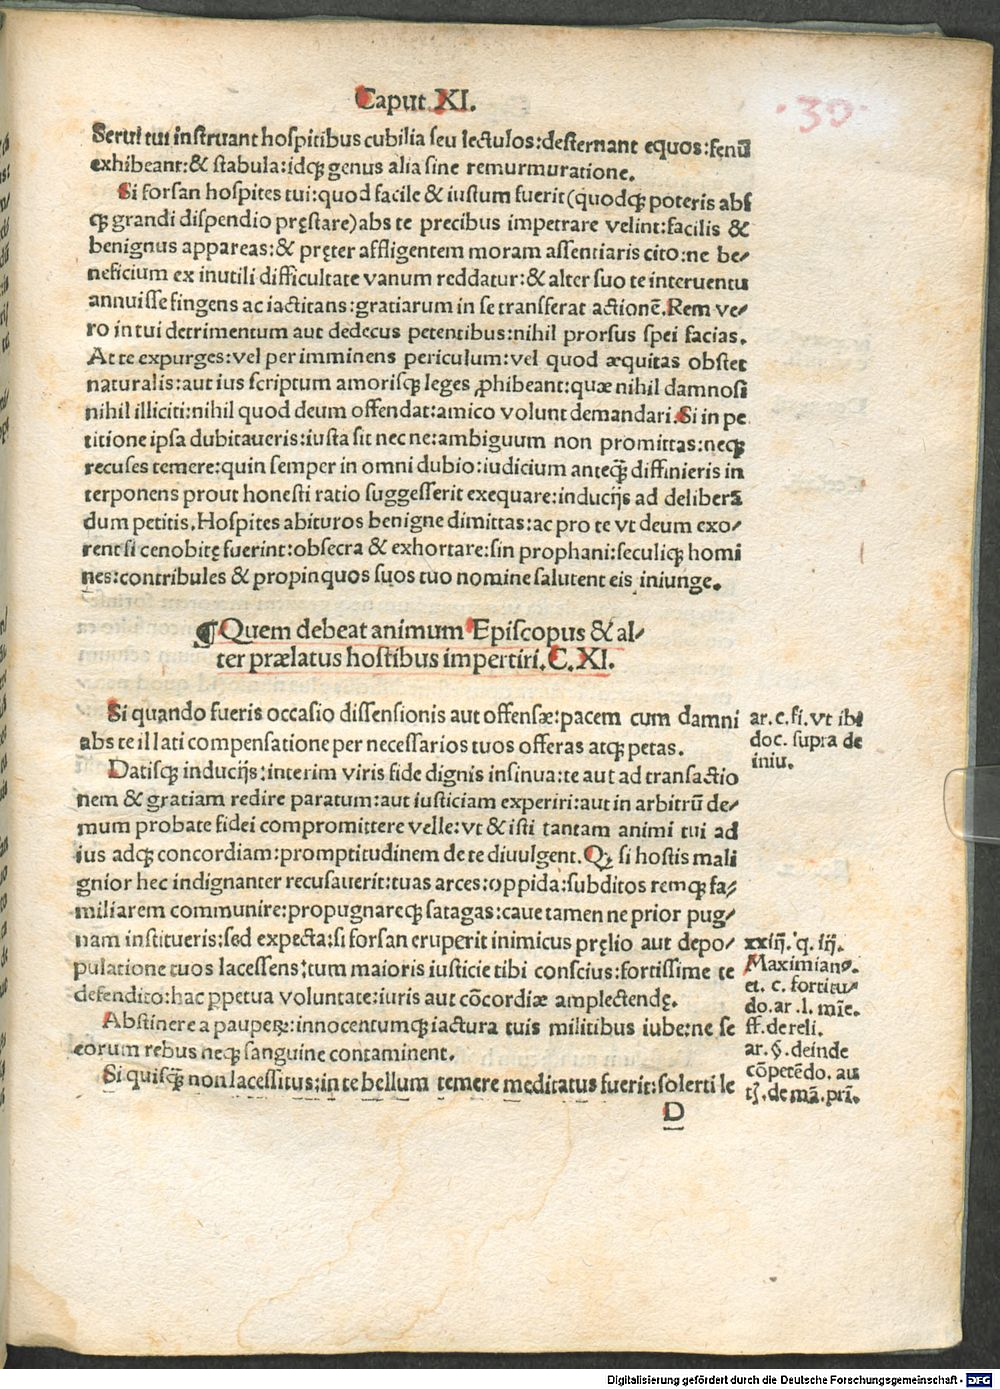 Caput XI.
·30·
Serui tui instruant hospitibus cubilia seu lectulos:desternant equos:fęnū
exhibeant:& stabula:idqꝫ genus alia sine remurmuratione.
Si forsan hospites tui:quod facile & iustum fuerit(quodqꝫ poteris abs
qꝫ grandi dispendio pręstare)abs te precibus impetrare velint:facilis &
benignus appareas:& pręter affligentem moram assentiaris cito:ne be⸗
neficium ex inutili difficultate vanum reddatur:& alter suo te interuentu
annuisse fingens ac iactitans:gratiarum in se transferat actionē.Rem ve⸗
ro in tui detrimentum aut dedecus petentibus:nihil prorsus spei facias.
At te expurges:vel per imminens periculum:vel quod æquitas obstet
naturalis:aut ius scriptum amorisqꝫ leges ꝓhibeant:quæ nihil damnosi
nihil illiciti:nihil quod deum offendat:amico volunt demandari.Si in pe
titione ipsa dubitaueris:iusta sit nec ne:ambiguum non promittas:neqꝫ
recuses temere:quin semper in omni dubio:iudicium anteq̄ꝫ diffinieris in
terponens prout honesti ratio suggesserit exequare:inducijs ad deliberā
dum petitis.Hospites abituros benigne dimittas:ac pro te vt deum exo⸗
rent si cenobitę fuerint:obsecra & exhortare:sin prophani:seculiqꝫ homi
nes:contribules & propinquos suos tuo nomine salutent eis iniunge.
¶ Quem debeat animum Episcopus & al⸗
ter prælatus hostibus impertiri.C.XI.
Si quando fueris occasio dissensionis aut offensæ:pacem cum damni
abs te illati compensatione per necessarios tuos offeras atqꝫ petas.
Datisqꝫ inducijs:interim viris fide dignis insinua:te aut ad transactio
nem & gratiam redire paratum:aut iusticiam experiri:aut in arbitrū de⸗
mum probate fidei compromittere velle:vt & isti tantam animi tui ad
ius adqꝫ concordiam:promptitudinem de te diuulgent.Qꝫ si hostis mali
gnior hec indignanter recusauerit:tuas arces:oppida:subditos remqꝫ fa⸗
miliarem communire:propugnareqꝫ satagas:caue tamen ne prior pug⸗
nam institueris:sed expecta:si forsan eruperit inimicus pręlio aut depo⸗
pulatione tuos lacessens:tum maioris iusticie tibi conscius:fortissime te
defendito:hac ꝑpetua voluntate:iuris aut cōcordiæ amplectendę.
Abstinere a pauperꝝ:innocentumqꝫ iactura tuis militibus iube:ne se
eorum rebus neqꝫ sanguine contaminent.
Si quisq̄ꝫ non lacessitus:in te bellum temere meditatus fuerit:solerti le
D
ar.c.fi.vt ibi
doc. supra de
iniu.
xxiij.q.iij.
Maximianꝰ.
et. c. fortitu⸗
do.ar .l. mīe.
ff.de reli.
ar.§.deinde
cōpetēdo. au
tꝭ.de mā.prī.
Digitalisierung gefördert durch die Deutsche Forschungsgemeinschaft - DFG